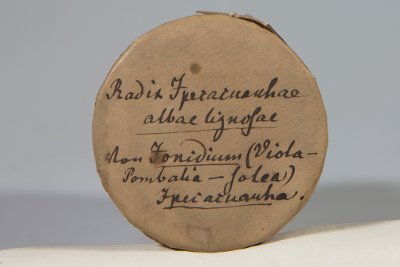 Radix Ipecacuanhae
albae lignosae
Von Ionidium (Viola-
Pombalia - Solea)
Ipecacuanha.